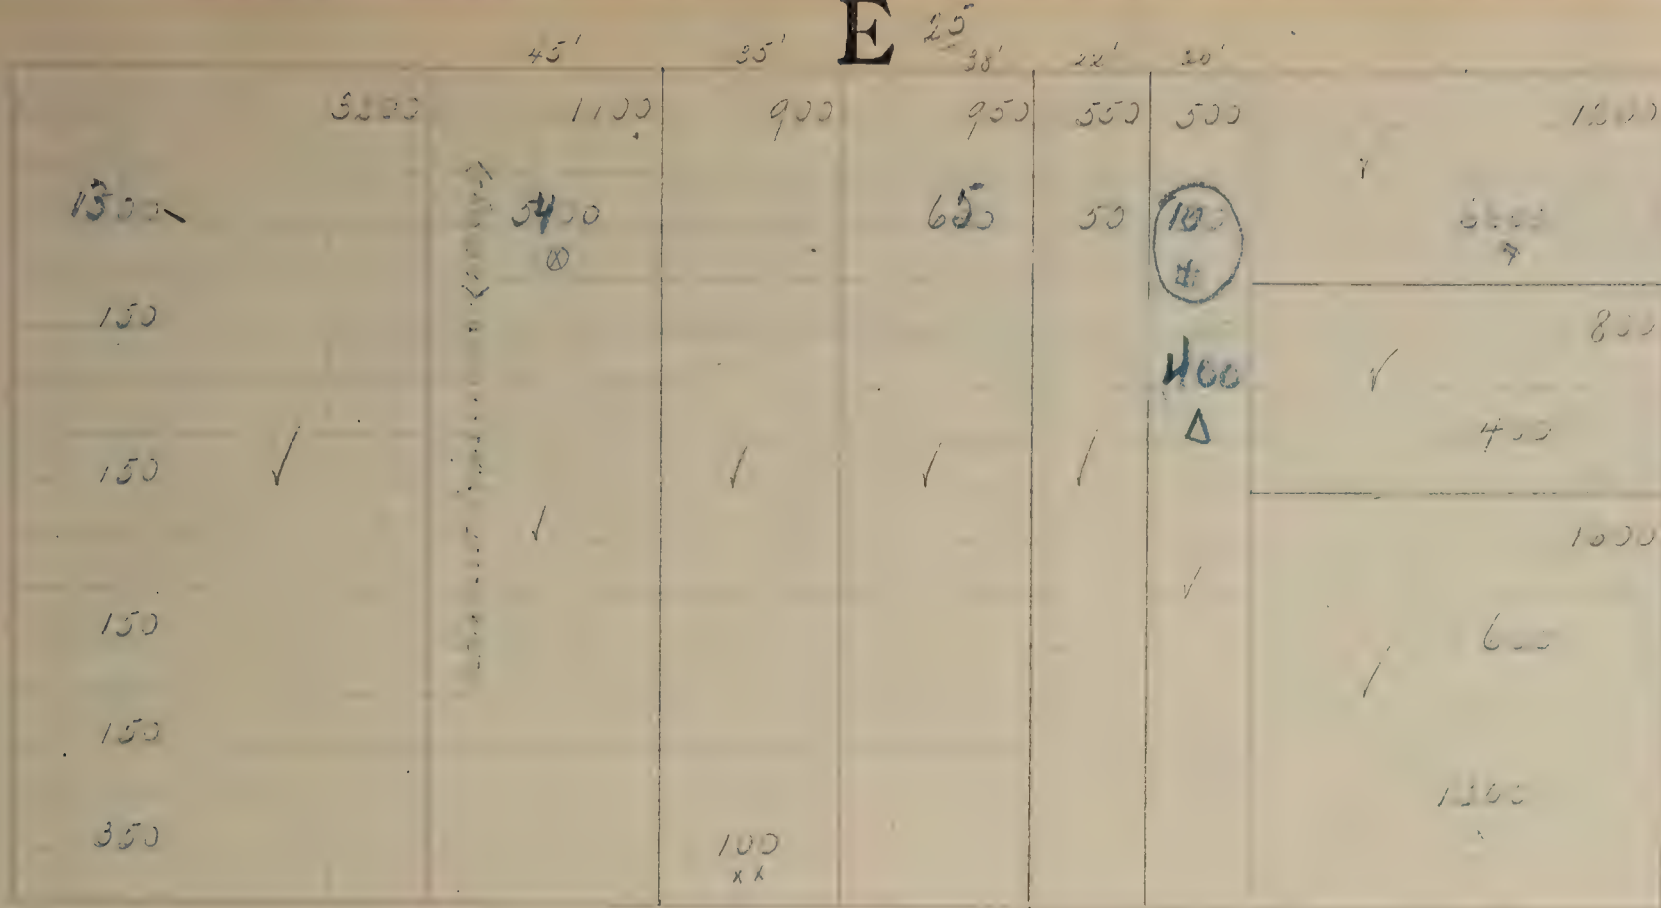 E 25
45' 35' 38' 22' 20'
3200 1100 900 950 550 500
1300 5400 650 50 100
⊗ #
150 800
400
Δ
150 400
1000
150 600
150
1200
350 100
x x